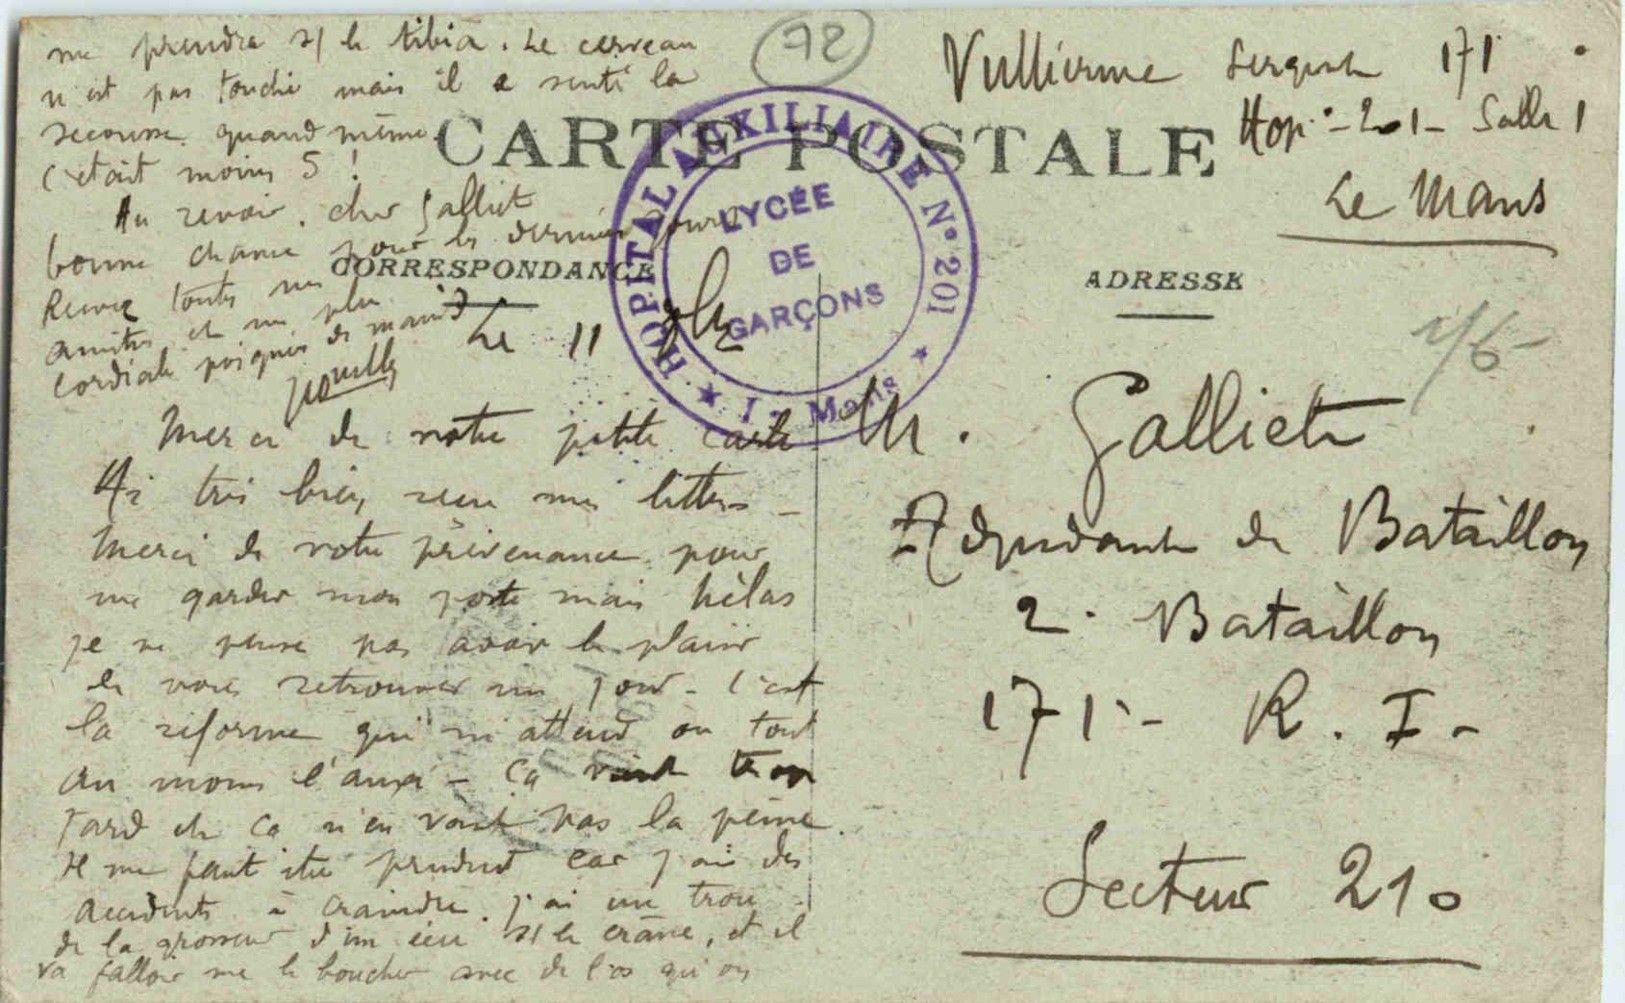 72
Vullierme Sergent 171
Hop. - 201 - Salle 1
Le Mans
CARTE POSTALE
CORRESPONDANCE
ADRESSE
HOPITAL AUXILIAIRE N° 201
LYCÉE
DE
GARÇONS
Le Mans
Le 11
Merci de votre petite carte
Ai très bien recu mes lettres -
Merci de votre prévenance pour
me garder mon poste mais hélas
je ne pense pas avoir le plaisir
de vous retrouver un jour - C'est
la réforme qui m'attend ou tout
au moins l'auxi - Ca vient trop
tard et ca n'en vaut pas la peine.
Il me faut être prudent car j'ai des
accidents à craindre. j'ai un trou
de la grosseur d'un écu s/ le crâne, et il
va falloir me le boucher avec de l'os qu'on
me prendra s/ le tibia. Le cerveau
n'est pas touché mais il a senti la
secousse quand même.
C'était moins 5 !
Au revoir, cher Galliet
bonne chance pour les derniers jours
Recevez toutes mes
amitiés et ma plus
cordiale poignée de main
M. Galliet
Adjudant de Bataillon
2e Bataillon
171e - R. I -
Secteur 210